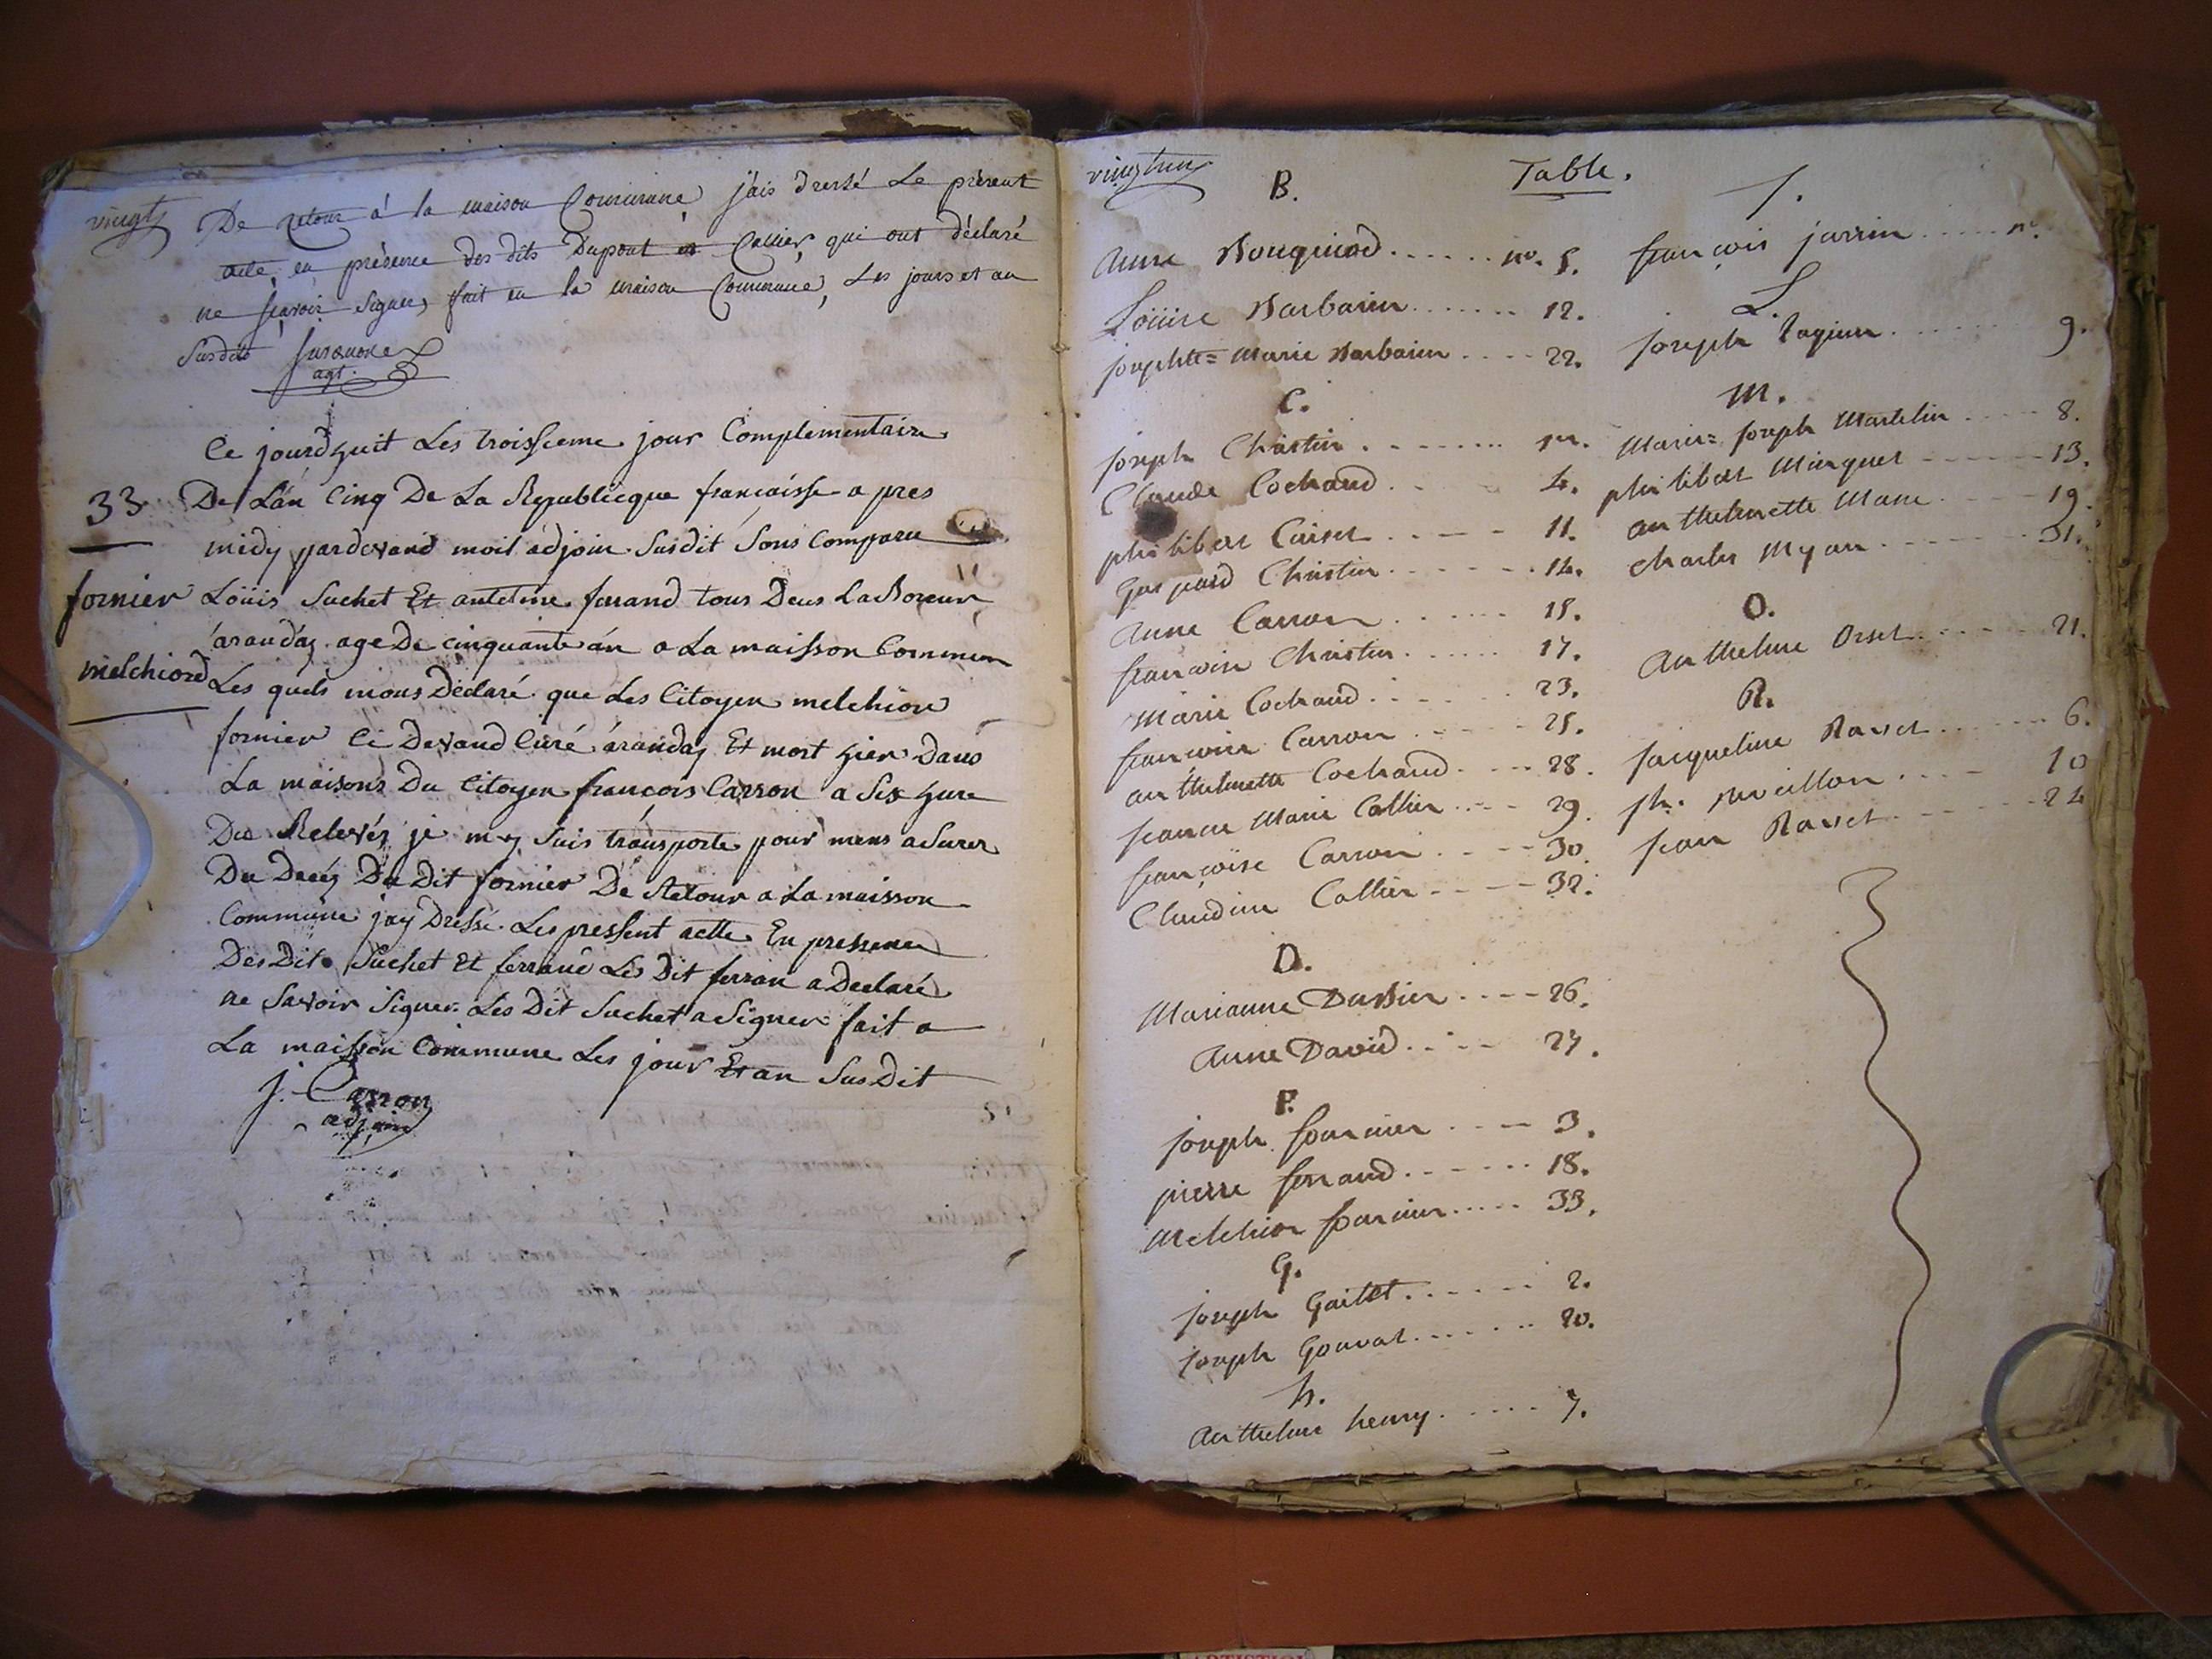 vingt
De retour à la maison Commune, j'ais dressé Le présent
acte, en présence des dits Dupont et Callier, qui ont déclaré
ne sçavoir Signer, fait en la maison Commune, Les jours et an
Susdits
agt.
Ce jourdhuit Les troisieme jour Complementaire
33 De Lan Cinq De La Republicque francaisse a pres
midy pardevand moit adjoin Susdit Sons Comparu
fornier Loüis Suchet Et antelme ferand tous Deus LaBoreur
arandaz age De cinquante án a La maisson Commun
melchiord Les quels mons Déclaré que Les Citoyen melchior
fornier Ci Devand Curé arandaz Et mort hier Dans
La maisons Du Citoyen françois Carron a Six hure
Du Relevéz je m y suis transporte pour mens aSurer
Du Decéz Du Dit fornier De Retour a La maisson
Commune jay Dressé Les pressent actte En pressence
Des Dit Suchet Et ferrand Les Dit ferran a Declaré
ne Savoir Signer Les Dit Suchet a Signer fait a
La maisson Commune Les jour Et an SusDit
j. Carron
adjoin
vingt un
Table.
B.
Anne Bouquinod...... no. 5.
Loüise Barbarin....... 12.
josephte=Marie Barbarin.... 22.
C.
joseph Christin........ 1er.
Claude Cochaud.... 4.
philibert Caiset.... 11.
Gaspard Christin....... 14.
Anne Carron...... 15.
francoise Christin...... 17.
Marie Cochaud..... 23.
francoise Carron..... 25.
anthelmette Cochaud.... 28.
jeanne Marie Callier.... 29.
françoise Carron.... 30.
Claudine Callier.... 32.
D.
Marianne Dubier.... 26.
Anne David.... 27.
F.
joseph fournier.... 3.
pierre ferrand...... 18.
Melchior fournier..... 33.
G.
joseph Gaillet...... 2.
joseph Gonvat...... 20.
h.
Anthelme henry..... 7.
J.
françois jarrin..... no.
L.
joseph Lagieu...... 9.
M.
Marie=joseph Martelin.... 8.
philibert Minguet...... 13.
anthelmette Mane.... 19.
charles Myan...... 31.
O.
Anthelme Orset...... 21.
R.
Jacqueline Ravet...... 6.
ph. Reveillon.... 10
jean Ravet...... 24